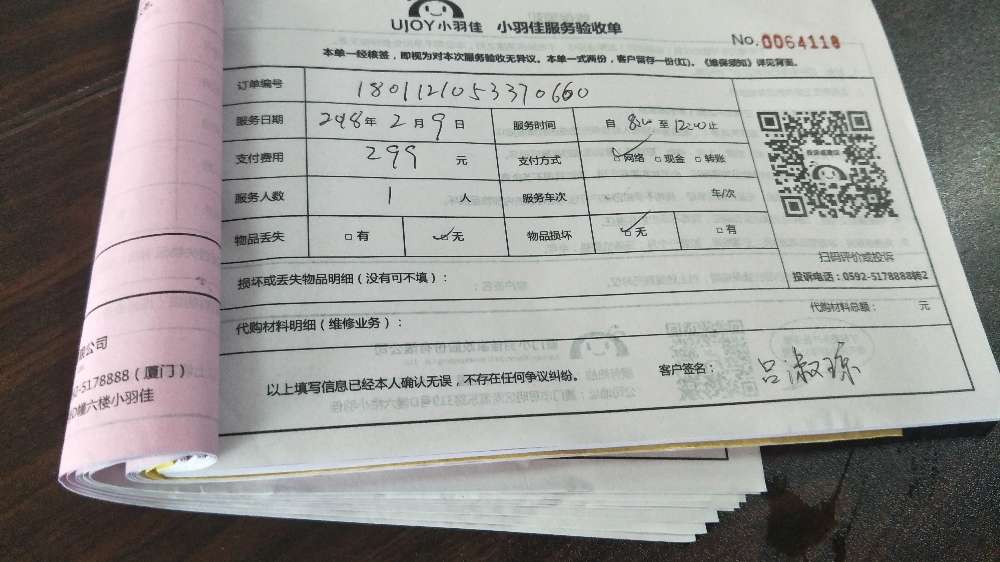 UJOY小羽佳 小羽佳服务验收单
No.0064118
本单一经核签，即视为对本次服务验收无异议。本单一式两份，客户留存一份(红)。《维保须知》详见背面。
订单编号 1801121053370660
服务日期 2018年2月9日 服务时间 自 8:20 至 12:20 止
支付费用 299 元 支付方式 ☑网络 □现金 □转账
服务人数 1 人 服务车次 车/次
物品丢失 □有 ☑无 物品损坏 ☑无 □有
扫码评价或投诉
投诉电话：0592-5178888转2
损坏或丢失物品明细（没有可不填）：
代购材料明细（维修业务）： 代购材料总额： 元
以上填写信息已经本人确认无误，不存在任何争议纠纷。 客户签名： 吕淑琼
限公司
92-5178888（厦门）
幢六楼小羽佳